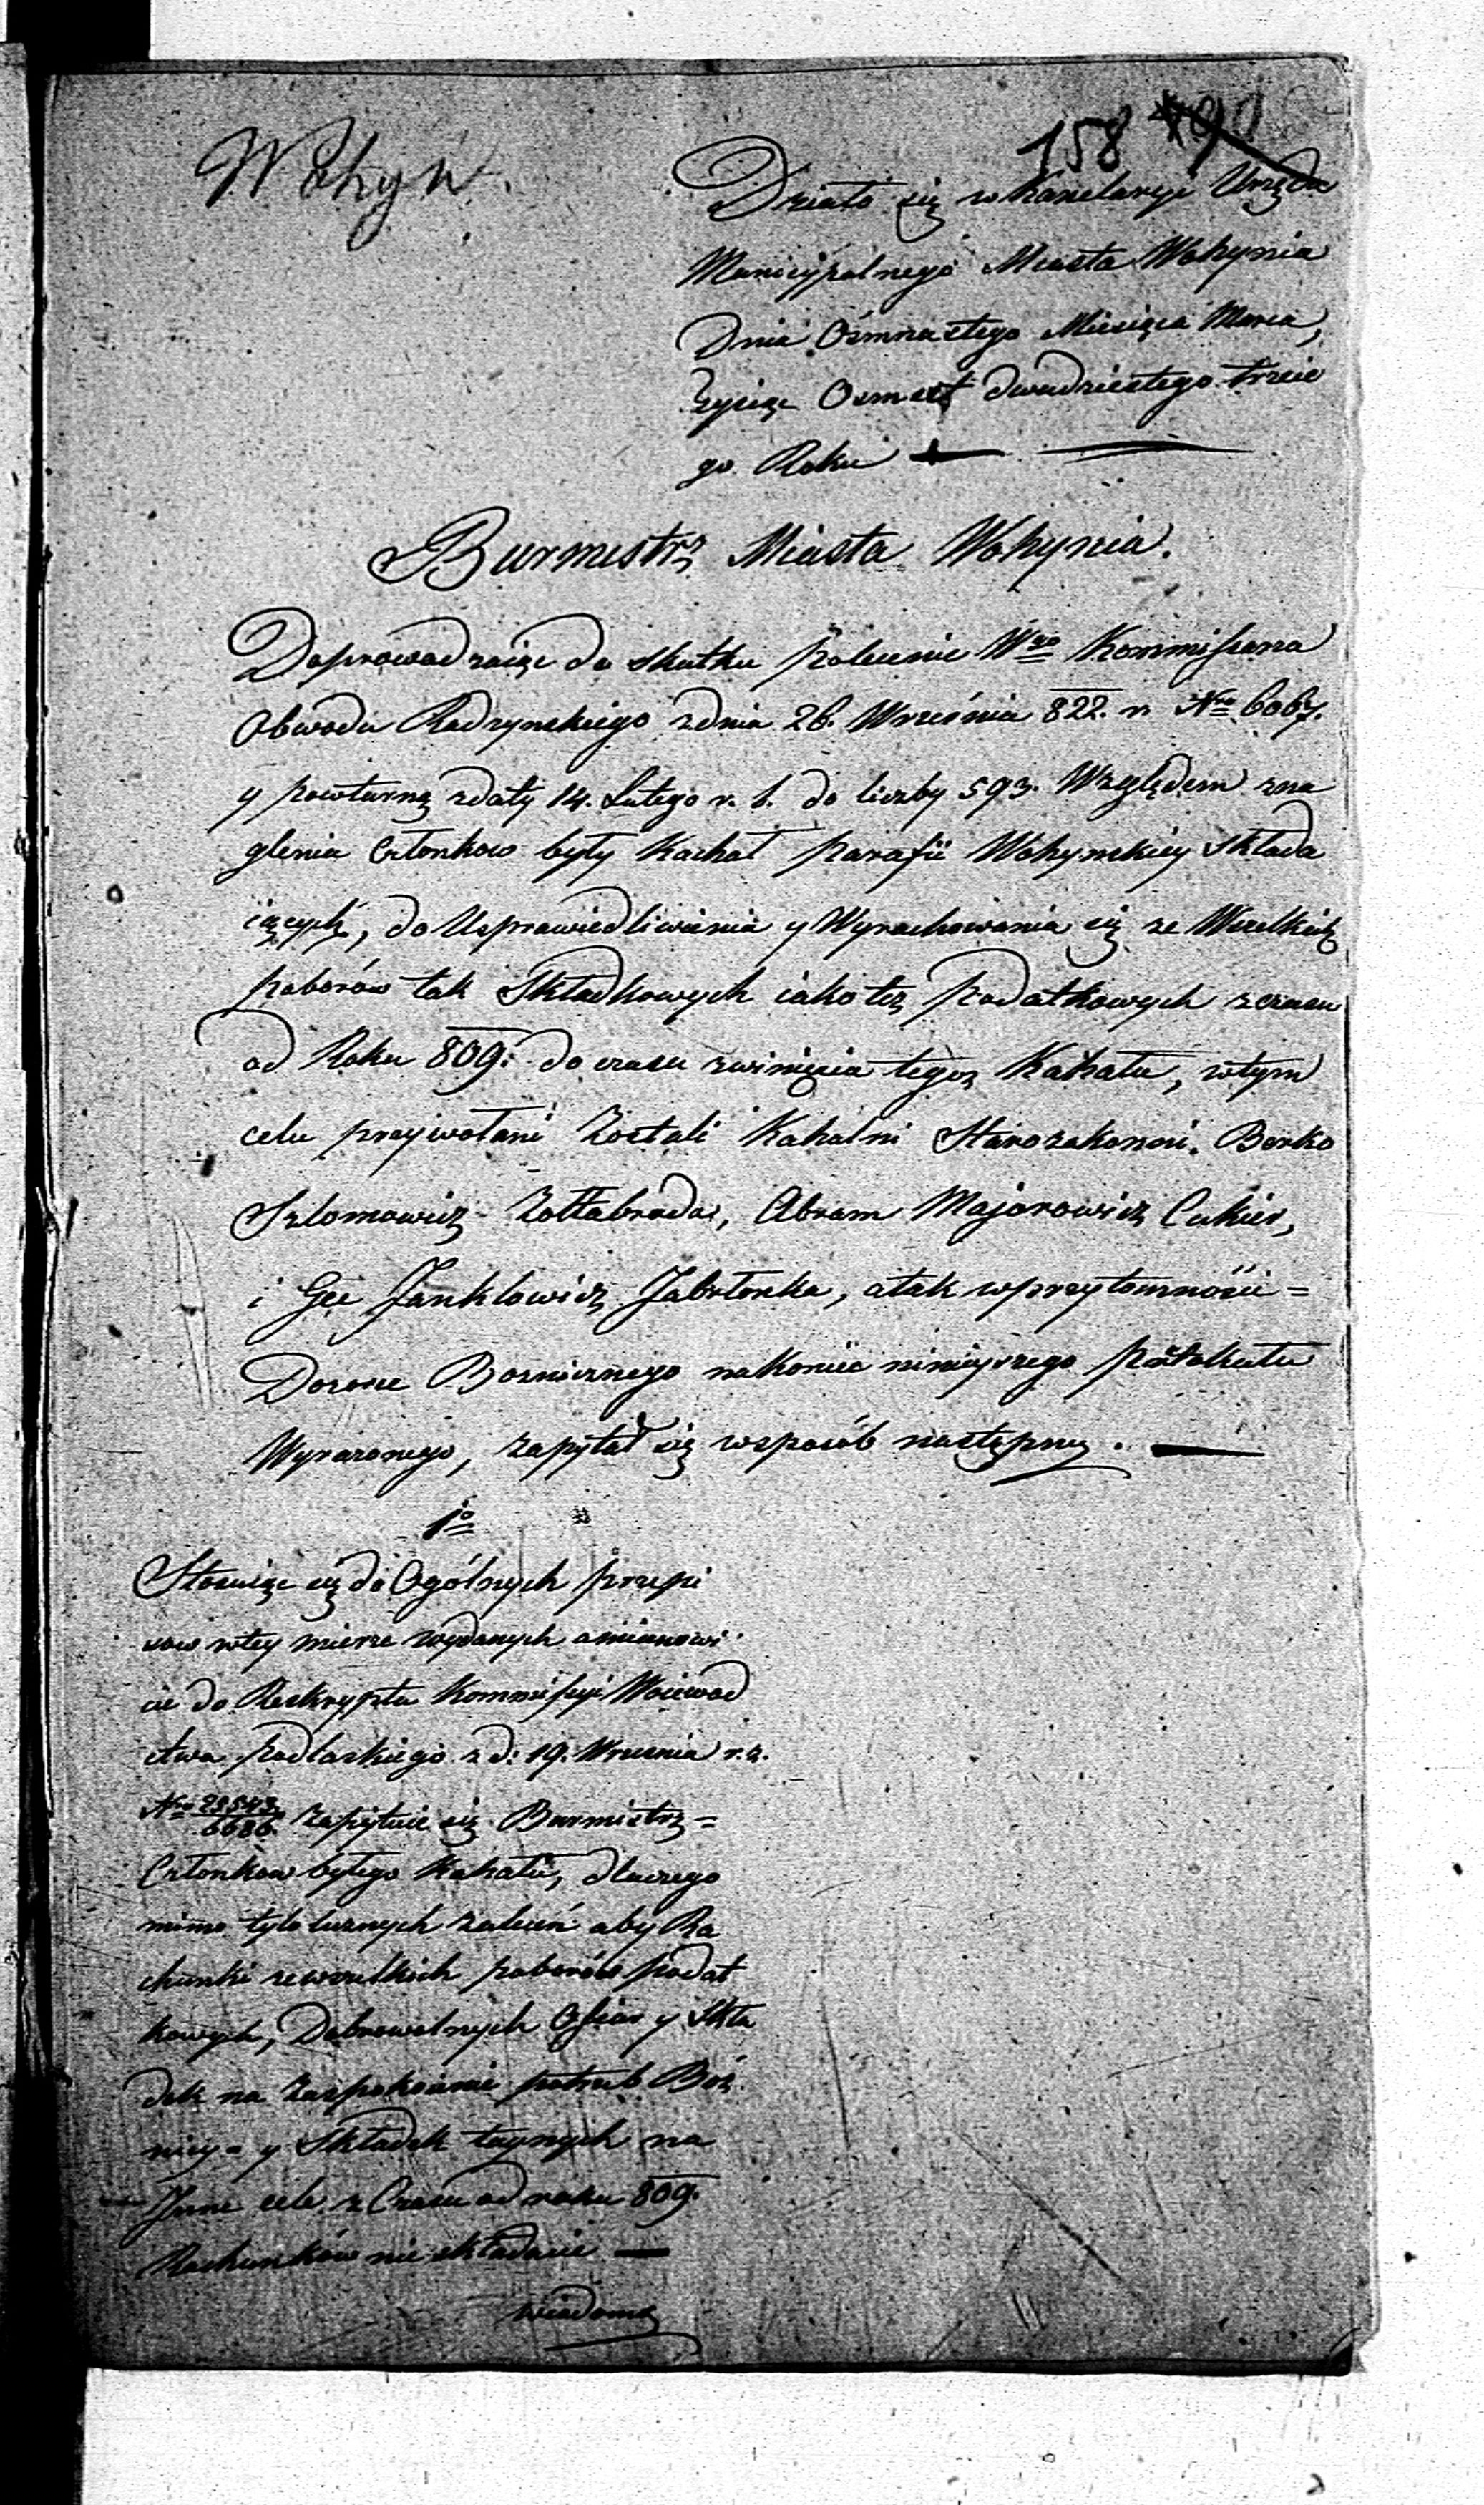 158
Wohyń.
Działo się w Kancelaryi Urzędu
Municypalnego Miasta Wohynia
Dnia Ośmnastego Miesiąca Marca,
Tysiąc Osmset dwudziestego trzecie
go Roku
Burmistrz Miasta Wohynia.
Doprowadzaiąc do skutku polecenie Wgo Kommissarza
Obwodu Radzynskiego zdnia 26. Września 822. r. Nro 6067.
y powturną zdaty 14. Lutego r. b. do liczby 593. Względem zna
glenia Członkow były Kachał parafii Wohynskiey składa
iących, do Usprawiedliwienia y Wyrachowania się ze Wszelkich
poborów tak Składkowych iakoteż podatkowych zczasu
od Roku 809. do czasu zwinięcia tegoż Kahału, wtym
celu przywołani Zostali Kahalni Starozakonni. Berko
Szlomowicz Zołtabroda, Abram Majorowicz Cukier,
i Gec Janklowicz Jabłonka, atak wprzytomności =
Dozoru Boznicznego nakońcu ninieyszego protokułu
Wyrażonego, zapytał się wsposób następny.
1o
Stosuiąc się do Ogólnych przepi
sow wtey mierze wydanych amianowi
cie do Reskryptu Kommissyi Woiewod
ztwa podlaskiego zd: 19. Wrzesnia r. z.
Nro 28543/6686 zapytuie się Burmistrz =
Członkow byłego Kahału, dlaczego
mimo tylolicznych zaleceń aby Ra
chunki zewszelkich poborów podat
kowych, Dobrowolnych Ofiar y Skła
dek na Zaspokoienie potrzeb Boż
nicy = y Składek taynych na
Inne cele z Czasu od roku 809.
Rachunków nie składacie
wiadomą